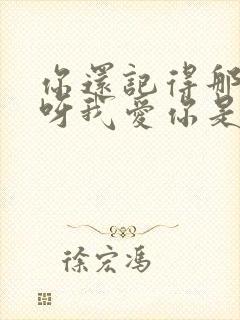 你還記得那
呀我愛你是
徐宏馮